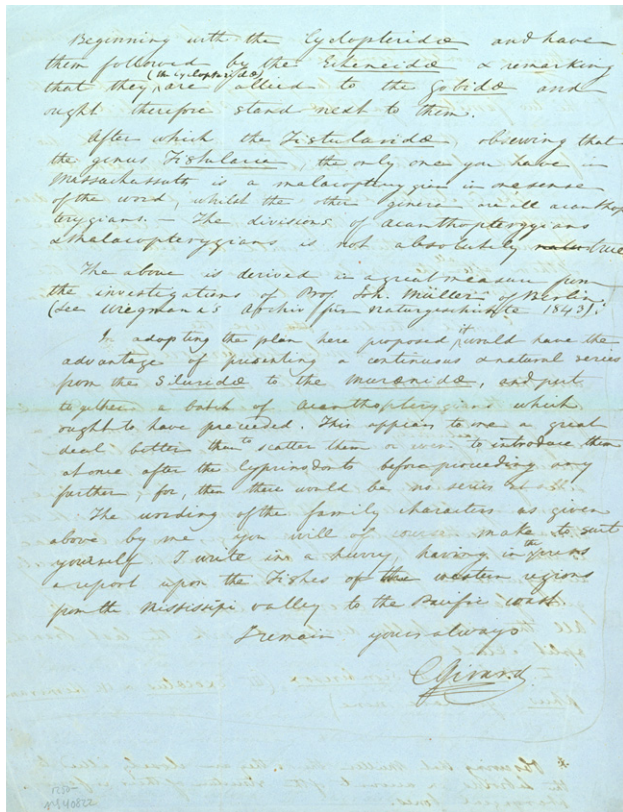 Beginning with the Cyclopteridæ and have
them followed by the Echeneidæ & remarking
that they (the Cyclopteridæ) are allied to the Gobidæ and
ought therefore stand next to them.
After which the Fistularidæ, observing that
the genus Fistularia, the only one you have in
Massachussetts is a malacopterygian in one sense
of the word, whilst the other genera are all acanthop
terygians. — The divisions of acanthopterygians
& Malacopterygians is not absolutely true
The above is derived in a great measure from
the investigations of Prof. Joh. Müller of Berlin
(See Wiegmann's Archiv für Naturgeschichte 1843).
In adopting the plan here proposed, it would have the
advantage of presenting a continuous & natural series
from the Siluridæ to the Murænidæ, and put
together a batch of acanthopterygians which
ought to have preceeded. This appears to me a great
deal better than to scatter them or even to introduce them
at once after the Cyprinodonts before proceeding any
further, for, then there would be no series at all.
The wording of the family characters as given
above by me, you will of course make to suit
yourself. I write in a hurry, having in the press
a report upon the Fishes of the western regions
from the Mississipi valley to the Pacific coast
I remain yours always
C Girard